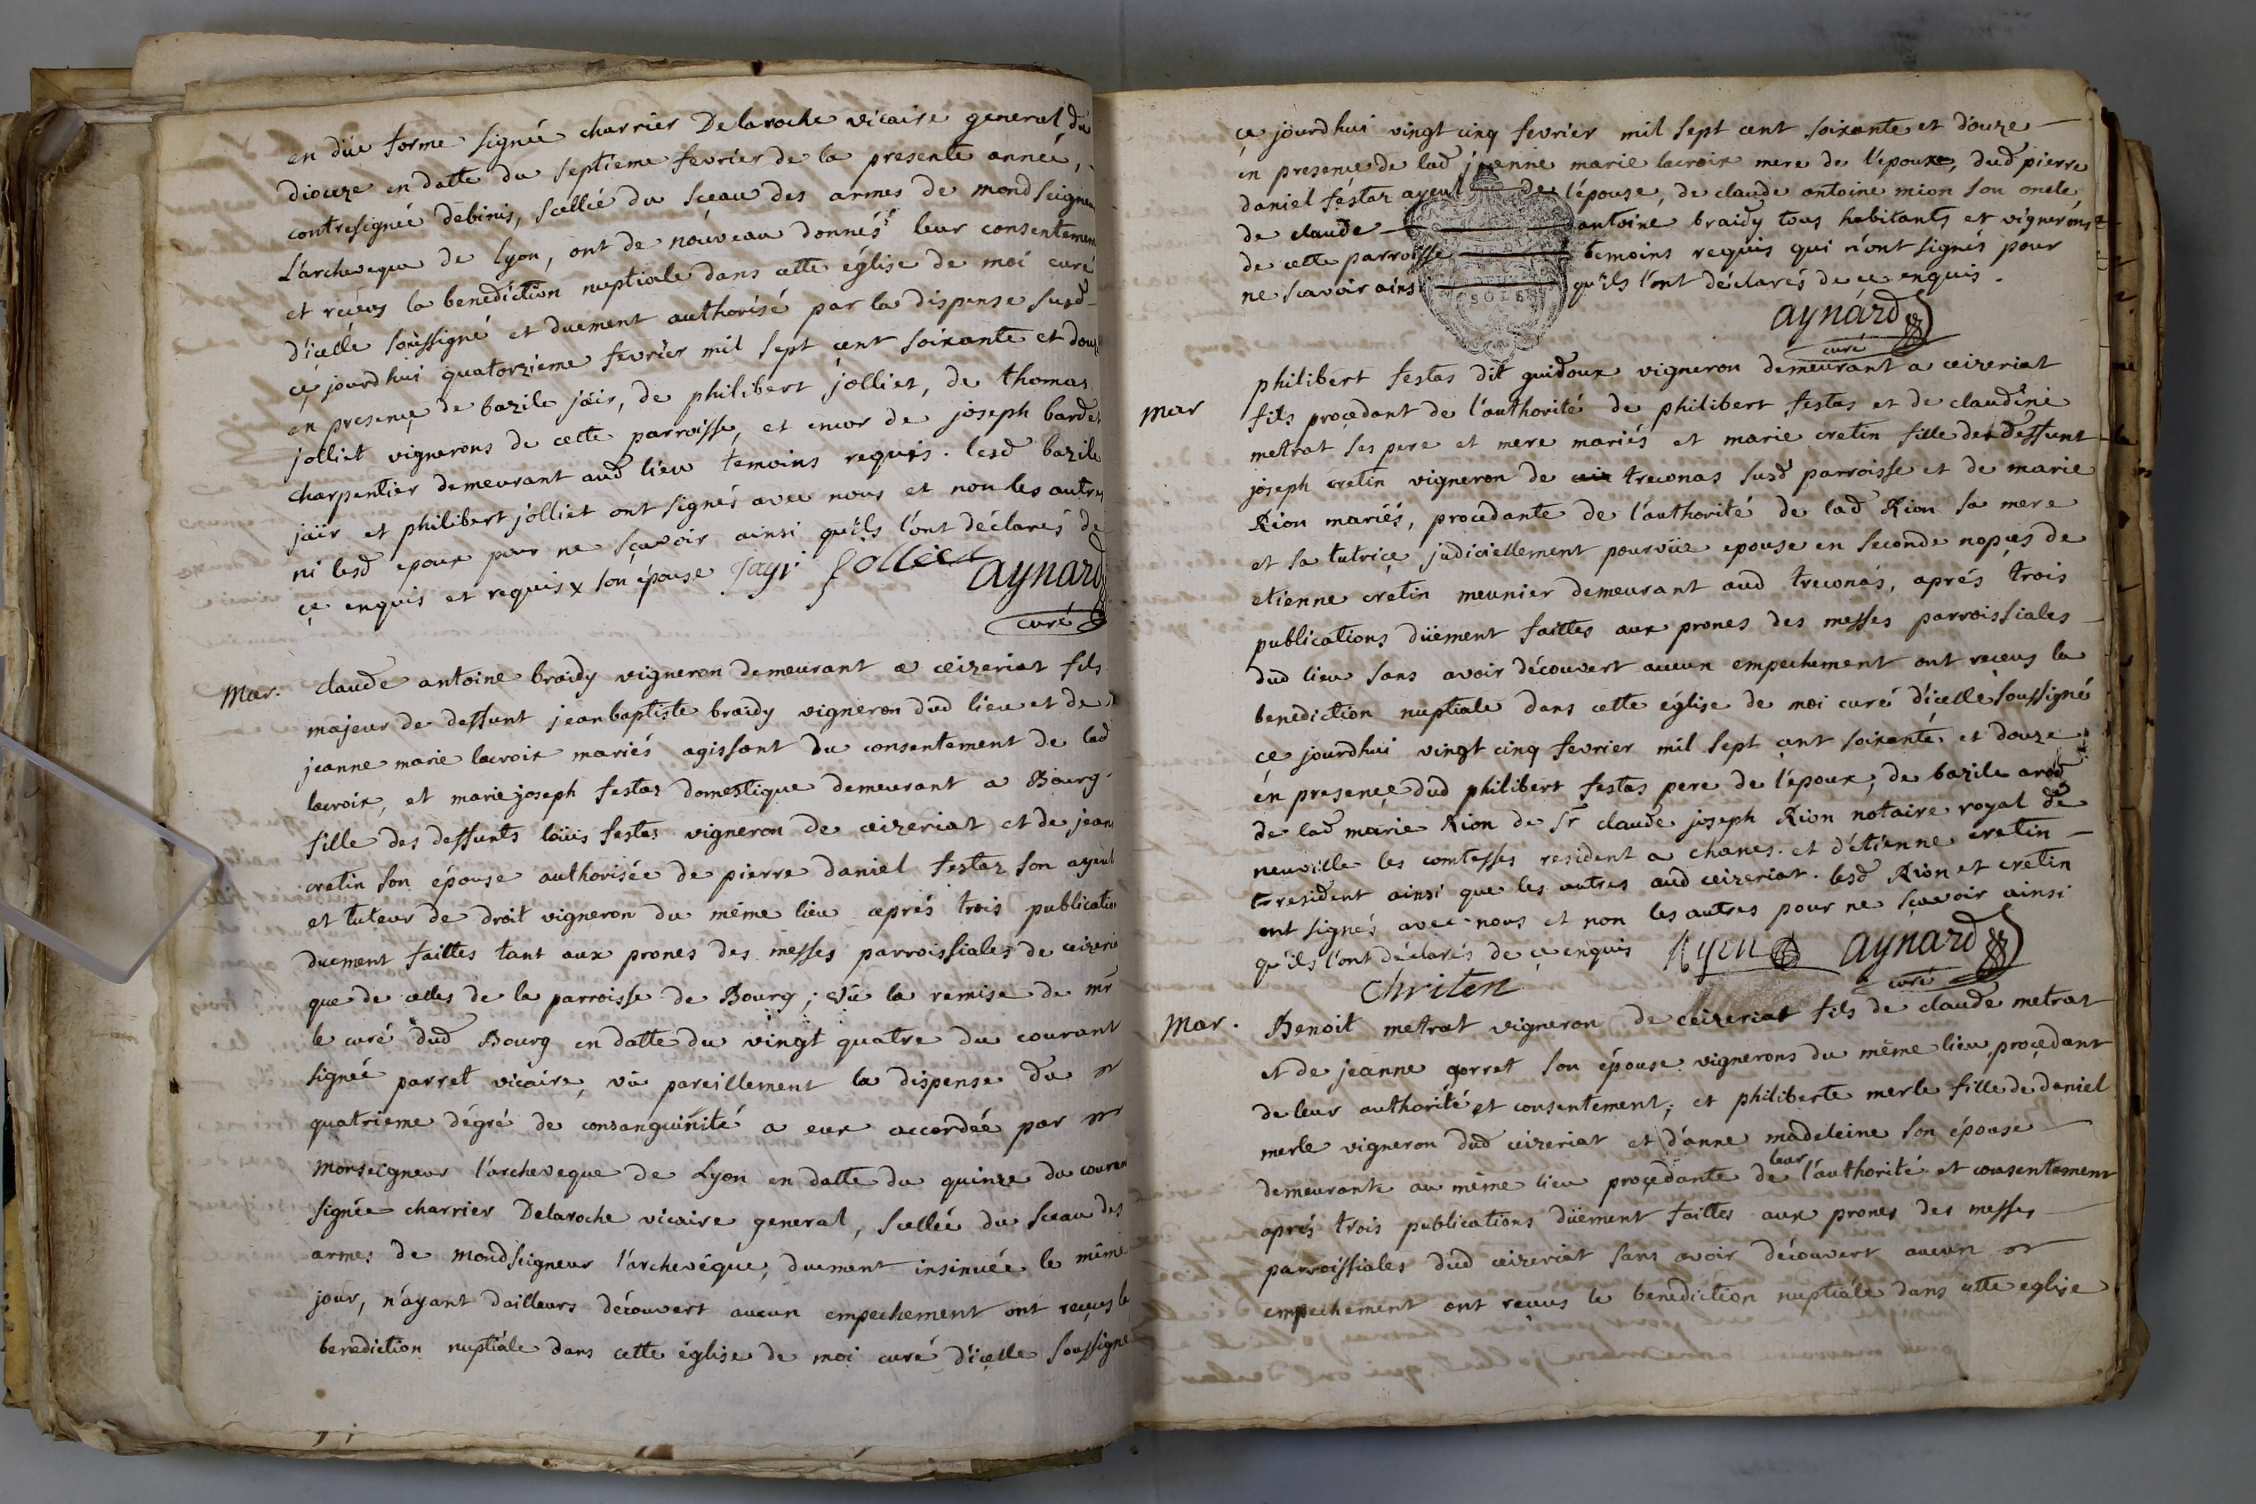 en düe forme signée charrier Delaroche vicaire general du
dioceze en datte du septieme fevrier de la presente année,
contresignée debinis, scellée du sçeau des armes de mondseigneur
L'archeveque de Lyon, ont de nouveau donnés leur consentement
et receus la benediction nuptiale dans cette église de moi curé
d'icelle soussigné et duement authorisé par la dispense susd
ce jourdhui quatorzieme fevrier mil sept cent soixante et douze
en presence de bazile jaïr, de philibert jolliet, de thomas
jolliet vignerons de cette parroisse, et encor de joseph bardet
charpentier demeurant aud lieu temoins requis. lesd bazile
jaïr et philibert jolliet ont signés avec nous et non les autres
ni lesd epoux pour ne sçavoir ainsi qu'ils l'ont déclarés de
ce enquis et requis x son épouse jayr jolliet aynard
curé
Mar. claude antoine braidy vigneron demeurant a ceizeriat fils
majeur de deffunt jean baptiste braidy vigneron dud lieu et de
jeanne marie lacroix mariés agissant du consentement de lad
lacroix, et marie joseph festaz domestique demeurant a Bourg
fille des deffunts loüis festas vigneron de ceizeriat et de jeane
cretin son épouse authorisée de pierre daniel festaz son ayeul
et tuteur de droit vigneron du même lieu aprés trois publications
duement faittes tant aux prones des messes parroissiales de ceizeriat
que de celles de la parroisse de Bourg; vû la remise de mr
le curé dud Bourg en datte du vingt quatre du courant
signée parret vicaire, vû pareillement la dispense du
quatrieme dégré de consanguinité a eux accordée par
monseigneur l'archeveque de Lyon en datte du quinze du courant
signée charrier Delaroche vicaire general, scellée du sceau des
armes de mondseigneur l'archevêque, duement insinuée le même
jour, n'ayant dailleurs découvert aucun empechement ont reçeus la
benediction nuptiale dans cette église de moi curé d'icelle soussigné
ce jourdhui vingt cinq fevrier mil sept cent soixante et douze
en presence de lad jeanne marie lacroix mere de l'epoux, dud pierre
daniel festaz ayeul de l'épouse, de claude antoine mion son oncle
de claude antoine braidy tous habitants et vignerons
de cette parroisse temoins requis qui n'ont signés pour
ne scavoir ainsi qu'ils l'ont déclarés de ce enquis.
aynard
curé
mar philibert festas dit guidoux vigneron demeurant a ceizeriat
fils proçedant de l'authorité de philibert festas et de claudine
metrat ses pere et mere mariés et marie cretin fille de deffunt
joseph cretin vigneron de treconas susd parroisse et de marie
Rion mariés, procedante de l'authorité de lad Rion sa mere
et sa tutriçe judiciellement pourvüe epouse en seconde nopces de
etienne cretin meunier demeurant aud treconas, aprés trois
publications düement faittes aux prones des messes parroissiales
dud lieu sans avoir découvert aucun empechement ont receus la
benediction nuptiale dans cette église de moi curé d'icelle soussigné
ce jourdhui vingt cinq fevrier mil sept cent soixante et douze
en presençe dud philibert festas pere de l'époux, de bazile
de lad marie Rion de Sr claude joseph Rion notaire royal de
neuville les comtesses resident a chanes. et d'étienne cretin
resident ainsi que les autres aud ceizeriat. lesd Rion et cretin
ont signés avec nous et non les autres pour ne sçavoir ainsi
qu'ils l'ont déclarés de ce enquis Ryon aynard
Chriten curé
Mar. Benoit metrat vigneron de ceizeriat fils de claude metrat
et de jeanne gorret son épouse vignerons du même lieu proçedant
de leur authorité et consentement; et philiberte merle fille de daniel
merle vigneron dud ceizeriat et d'anne madeleine son épouse
demeurante au même lieu proçedante de leur l'authorité et consentement
aprés trois publications düement faittes aux prones des messes
parroissiales dud ceizeriat sans avoir découvert aucun
empechement ont receus la benediction nuptiale dans cette eglise